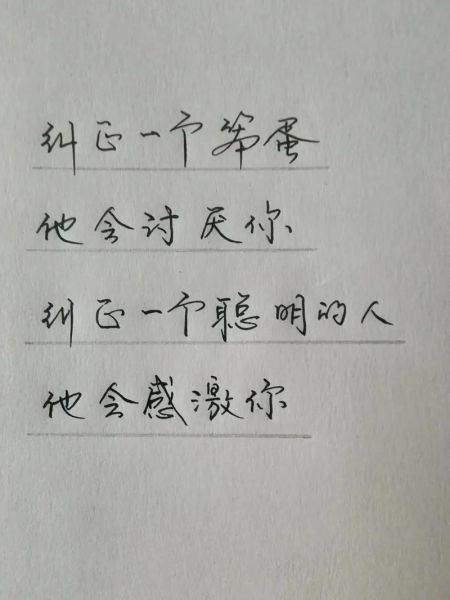 纠正一个笨蛋
他会讨厌你
纠正一个聪明的人
他会感激你